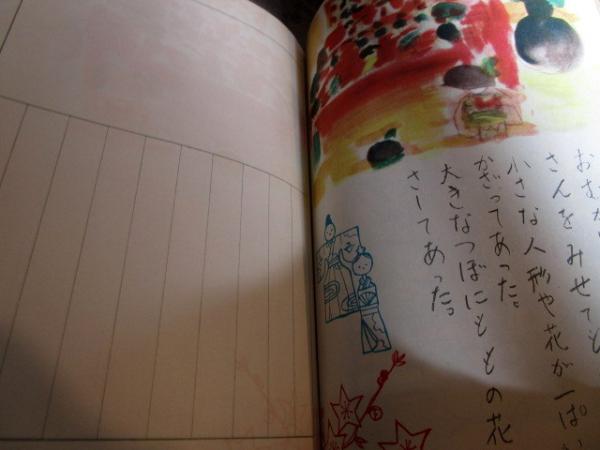 おむか
さんをみせても
小さな人形や花が一ぱい
かざってあった。
大きなつぼにももの花
さしてあった。